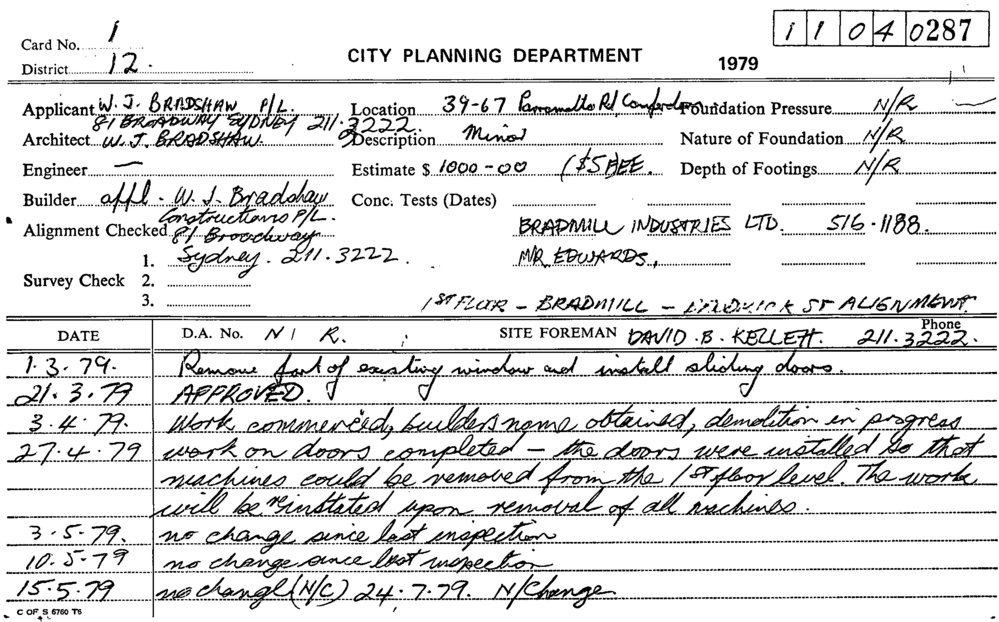 1 1 0 4 0287
Card No. 1
CITY PLANNING DEPARTMENT 1979
District 12.
Applicant W. J. BRADSHAW P/L. Location 39-67 Parramatta Rd, Foundation Pressure N/R
81 BROADWAY SYDNEY 211.3222
Architect W. J. BRADSHAW. Description Minor Nature of Foundation N/R
Engineer — Estimate $ 1000-00 ($5) FEE. Depth of Footings N/R
Builder appl. W. J. Bradshaw Conc. Tests (Dates)
Constructions P/L.
Alignment Checked 81 Broadway BRADMILL INDUSTRIES LTD. 516.1188.
1. Sydney. 211.3222. MR. EDWARDS.,
Survey Check 2.
3. 1ST FLOOR - BRADMILL - ST ALIGNMENT.
DATE D.A. No. N / R. SITE FOREMAN DAVID .B. KELLETT. Phone 211.3222.
1.3.79. Remove part of existing window and install sliding doors.
21.3.79 APPROVED.
3.4.79. Work commenced, builders name obtained, demolition in progress
27.4.79 work on doors completed - the doors were installed so that
machines could be removed from the 1st floor level. The work
will be reinstated upon removal of all machines.
3.5.79. no change since last inspection
10.5.79 no change since last inspection
15.5.79 no change (N/C) 24.7.79. N/Change
C OF S 6760 T6